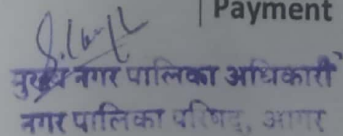 Payment
मुख्य नगर पालिका अधिकारी
नगर पालिका परिषद, आगर